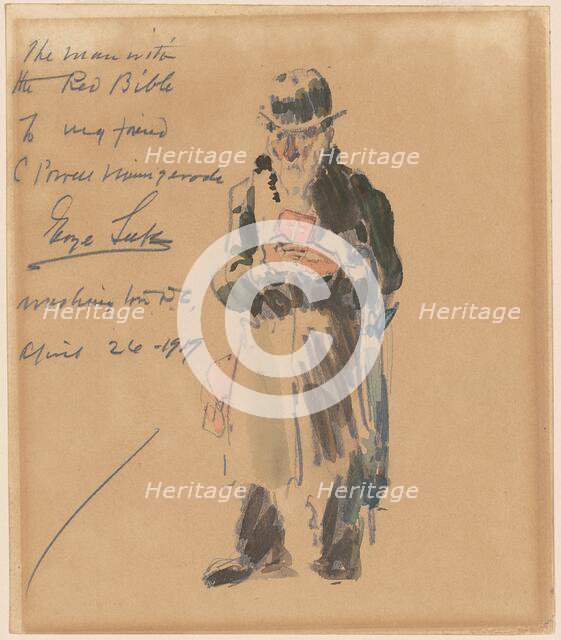 The man with
the Red Bible
To my friend
C Powell Minnigerode
George Luks
Washington D.C.
April 26 - 1919
Heritage Heritage Heritage
Heritage Heritage Heritage
Heritage Heritage